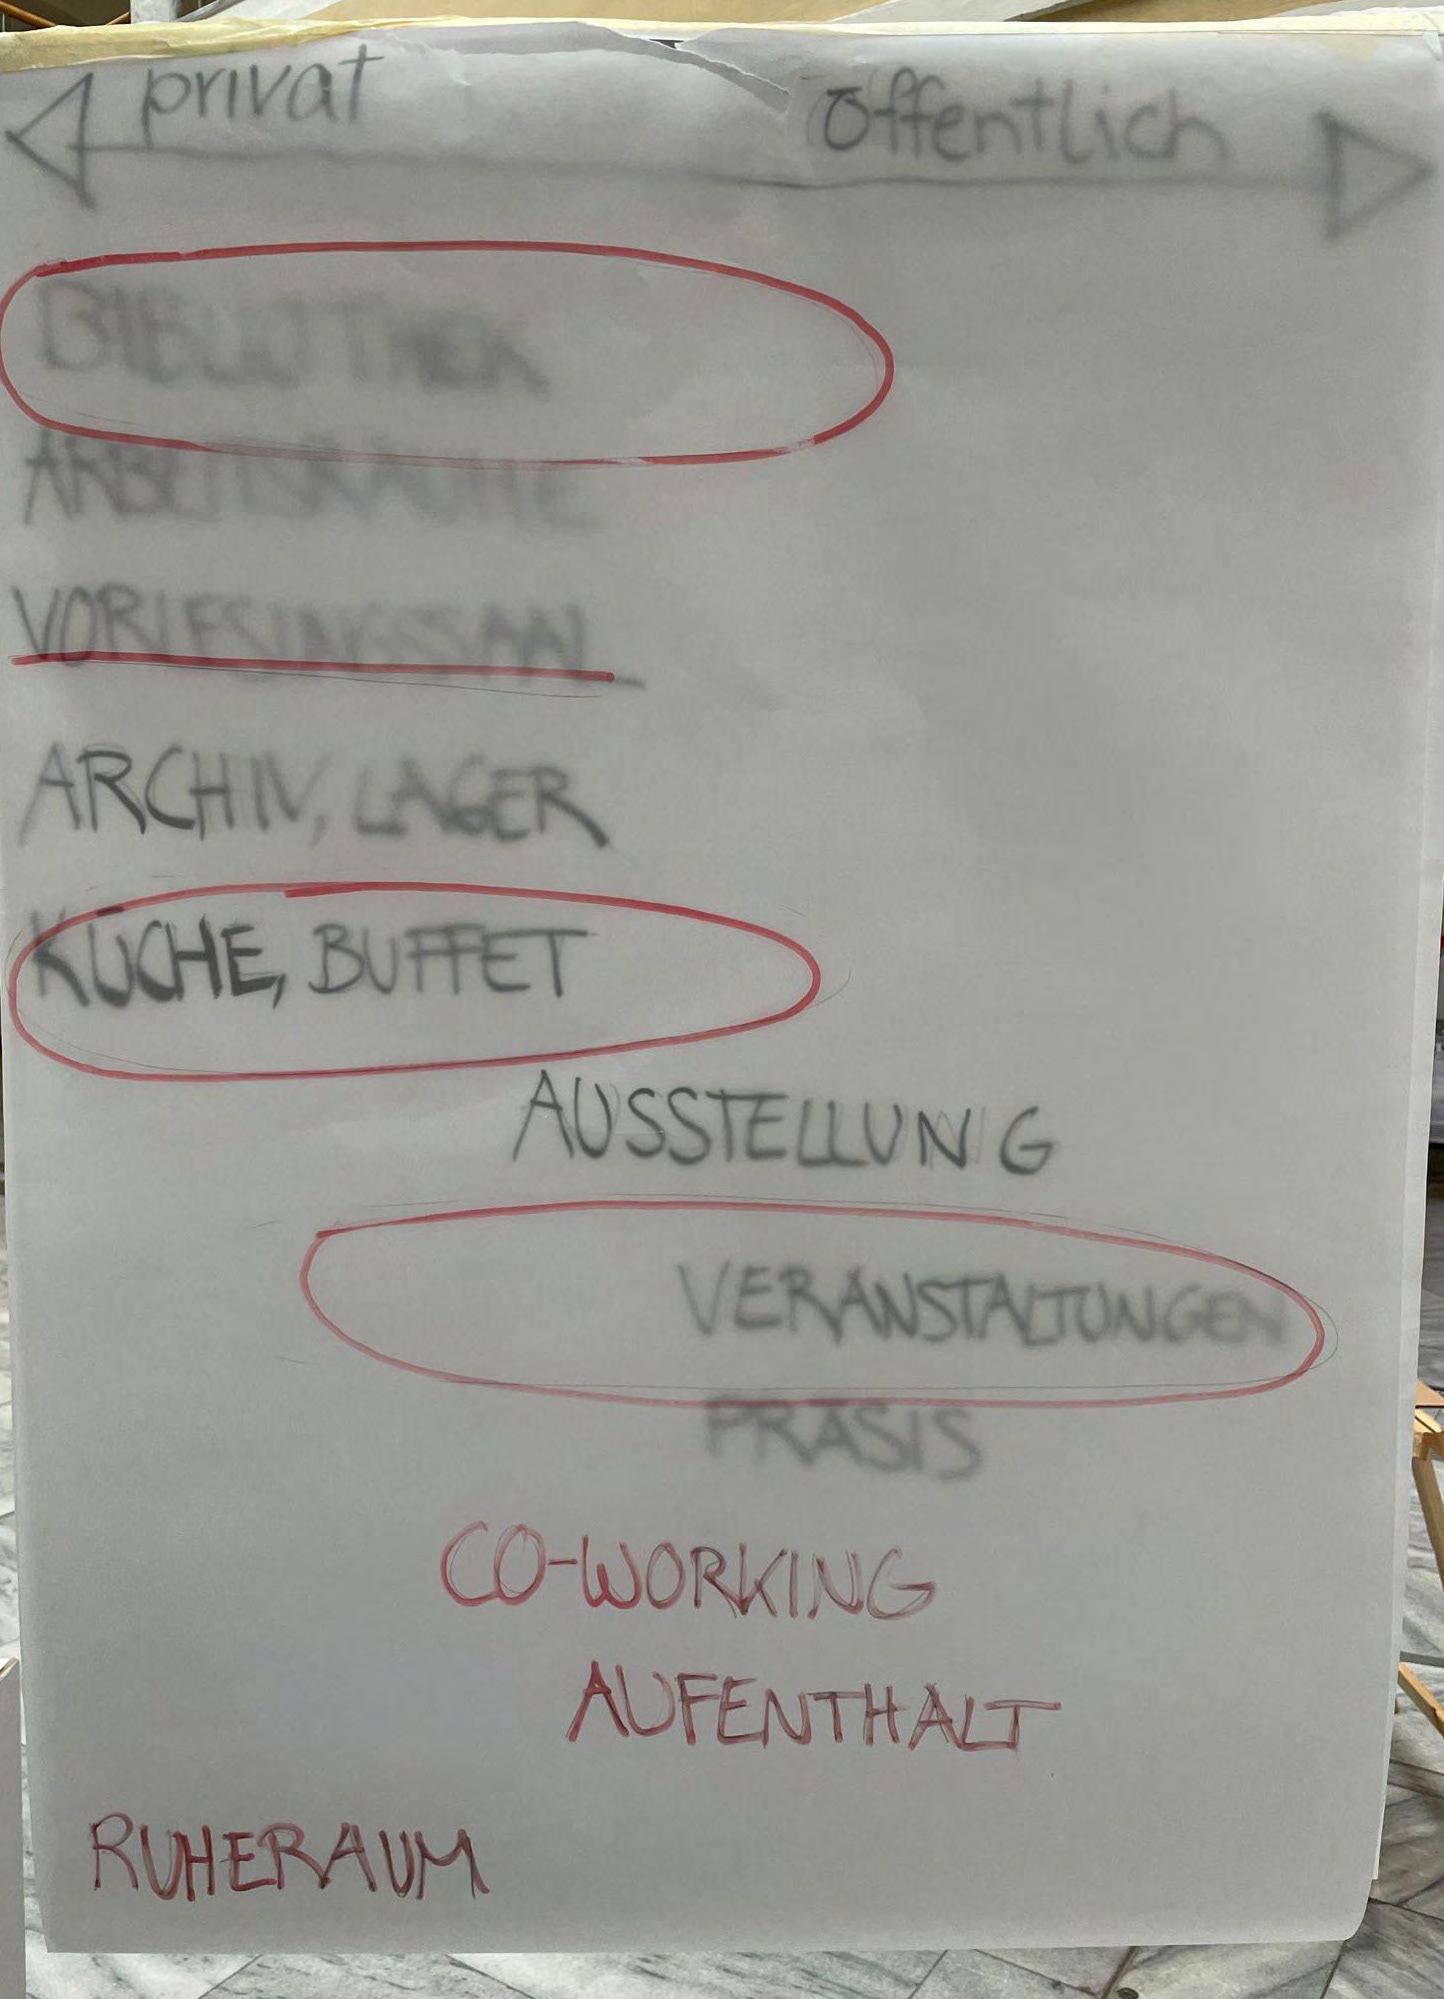 privat öffentlich
BIBLIOTHEK
ARBEITSRÄUME
VORLESUNGSSAAL
ARCHIV, LAGER
KÜCHE, BUFFET
AUSSTELLUNG
VERANSTALTUNGEN
PRÄSIS
CO-WORKING
AUFENTHALT
RUHERAUM